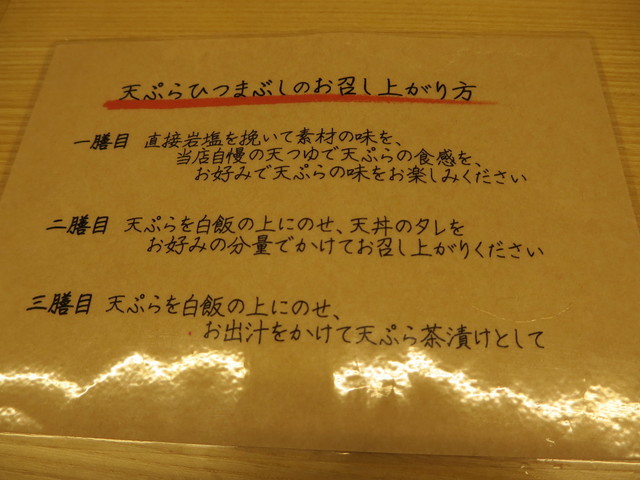 天ぷらひつまぶしのお召し上がり方
一膳目 直接岩塩を挽いて素材の味を、
当店自慢の天つゆで天ぷらの食感を、
お好みで天ぷらの味をお楽しみください
二膳目 天ぷらを白飯の上にのせ、天丼のタレを
お好みの分量でかけてお召し上がりください
三膳目 天ぷらを白飯の上にのせ、
お出汁をかけて天ぷら茶漬けとして